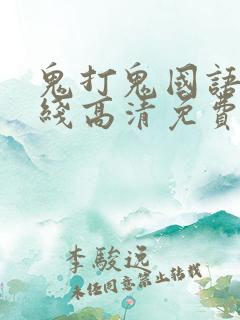 鬼打鬼國語
綫高清免費
李駿逸
未经同意禁止转载